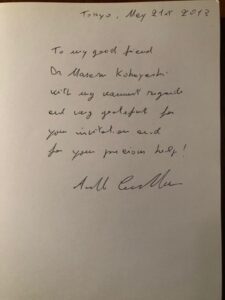 Tokyo, May 21st 2012
To my good friend
Dr Masaru Kobayashi
with my warmest regards
and very grateful for
your invitation and
for your precious help!